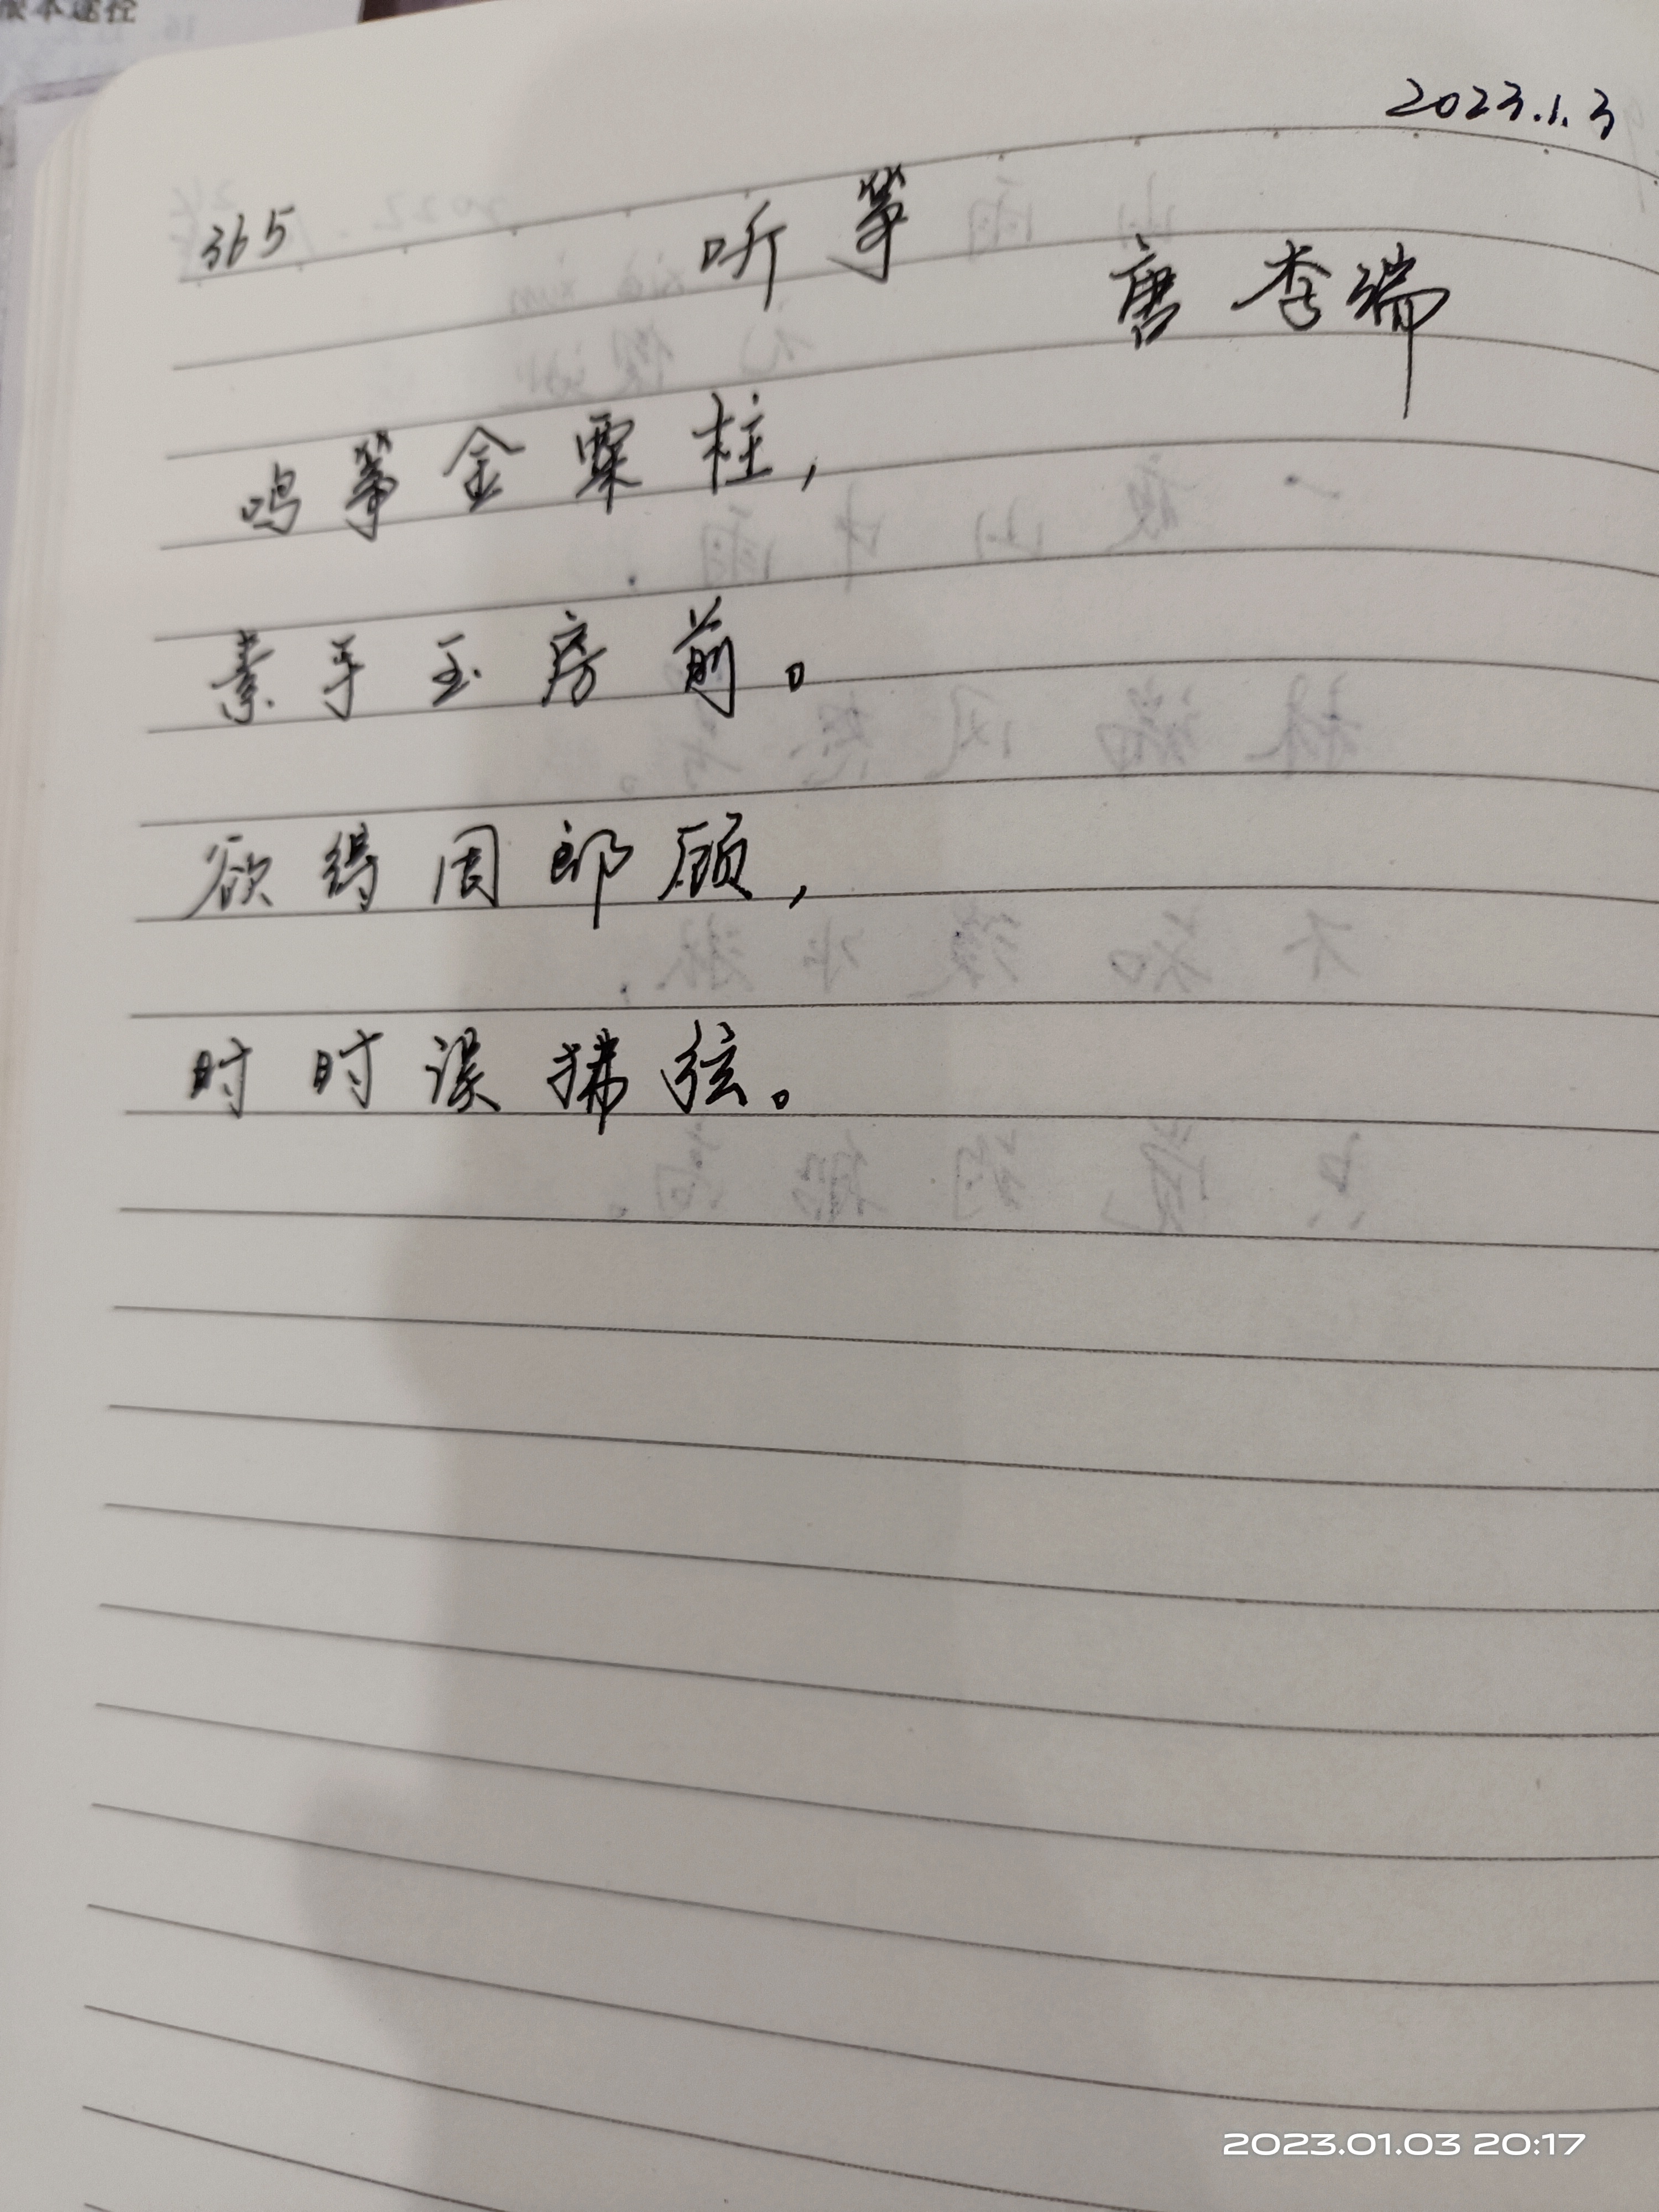 2023.1.3
365 听筝
唐 李端
鸣筝金粟柱，
素手玉房前。
欲得周郎顾，
时时误拂弦。
2023.01.03 20:17